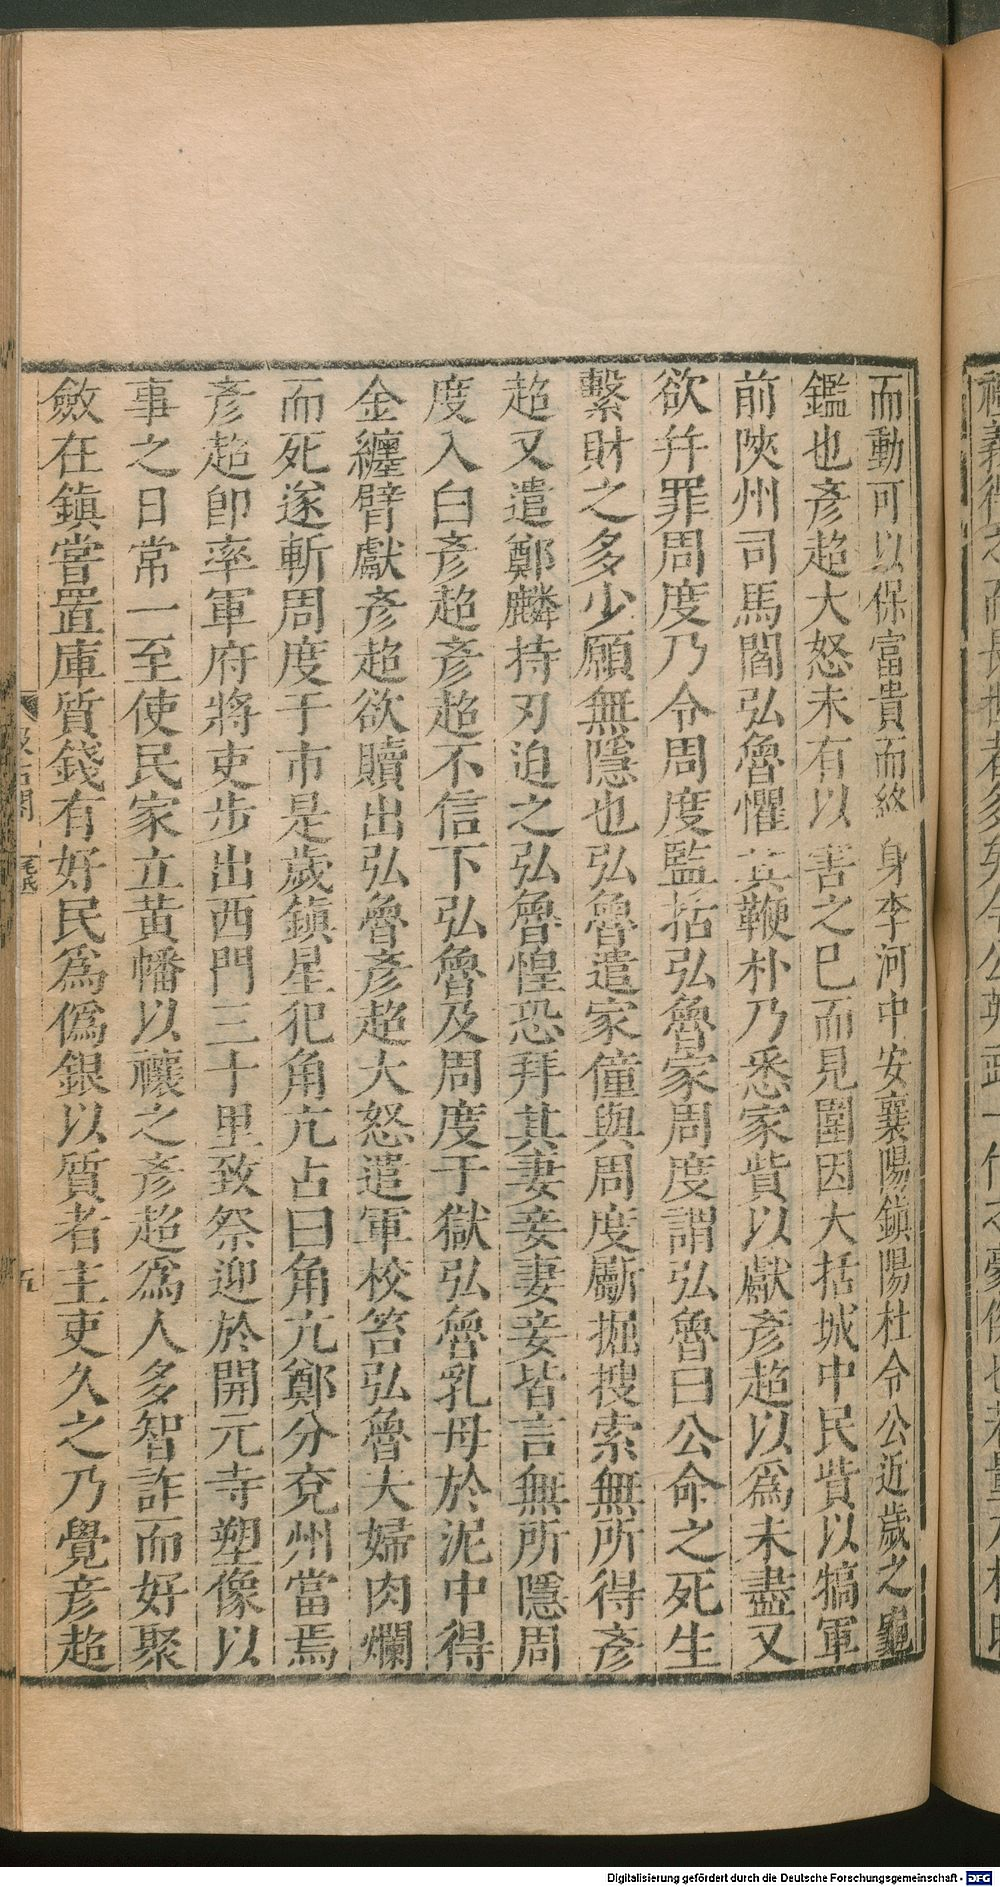 而動可以保富貴而終身李河中安襄陽鎮陽杜令公近歲之龜
鑑也彥超大怒未有以害之巳而見圍因大括城中民貲以犒軍
前陝州司馬閻弘魯懼其鞭朴乃悉家貲以獻彥超以爲未盡又
欲幷罪周度乃令周度監括弘魯家周度謂弘魯曰公命之死生
繫財之多少願無隱也弘魯遣家僮與周度斸掘搜索無所得彥
超又遣鄭麟持刃迫之弘魯惶恐拜其妻妾妻妾皆言無所隱周
度入白彥超彥超不信下弘魯及周度于獄弘魯乳母於泥中得
金纏臂獻彥超欲贖出弘魯彥超大怒遣軍校笞弘魯夫婦肉爛
而死遂斬周度于市是歲鎮星犯角亢占曰角亢鄭分兗州當焉
彥超卽率軍府將吏步出西門三十里致祭迎於開元寺塑像以
事之日常一至使民家立黃幡以禳之彥超爲人多智詐而好聚
斂在鎮嘗置庫質錢有好民爲僞銀以質者主吏久之乃覺彥超
五
Digitalisierung gefördert durch die Deutsche Forschungsgemeinschaft - DFG